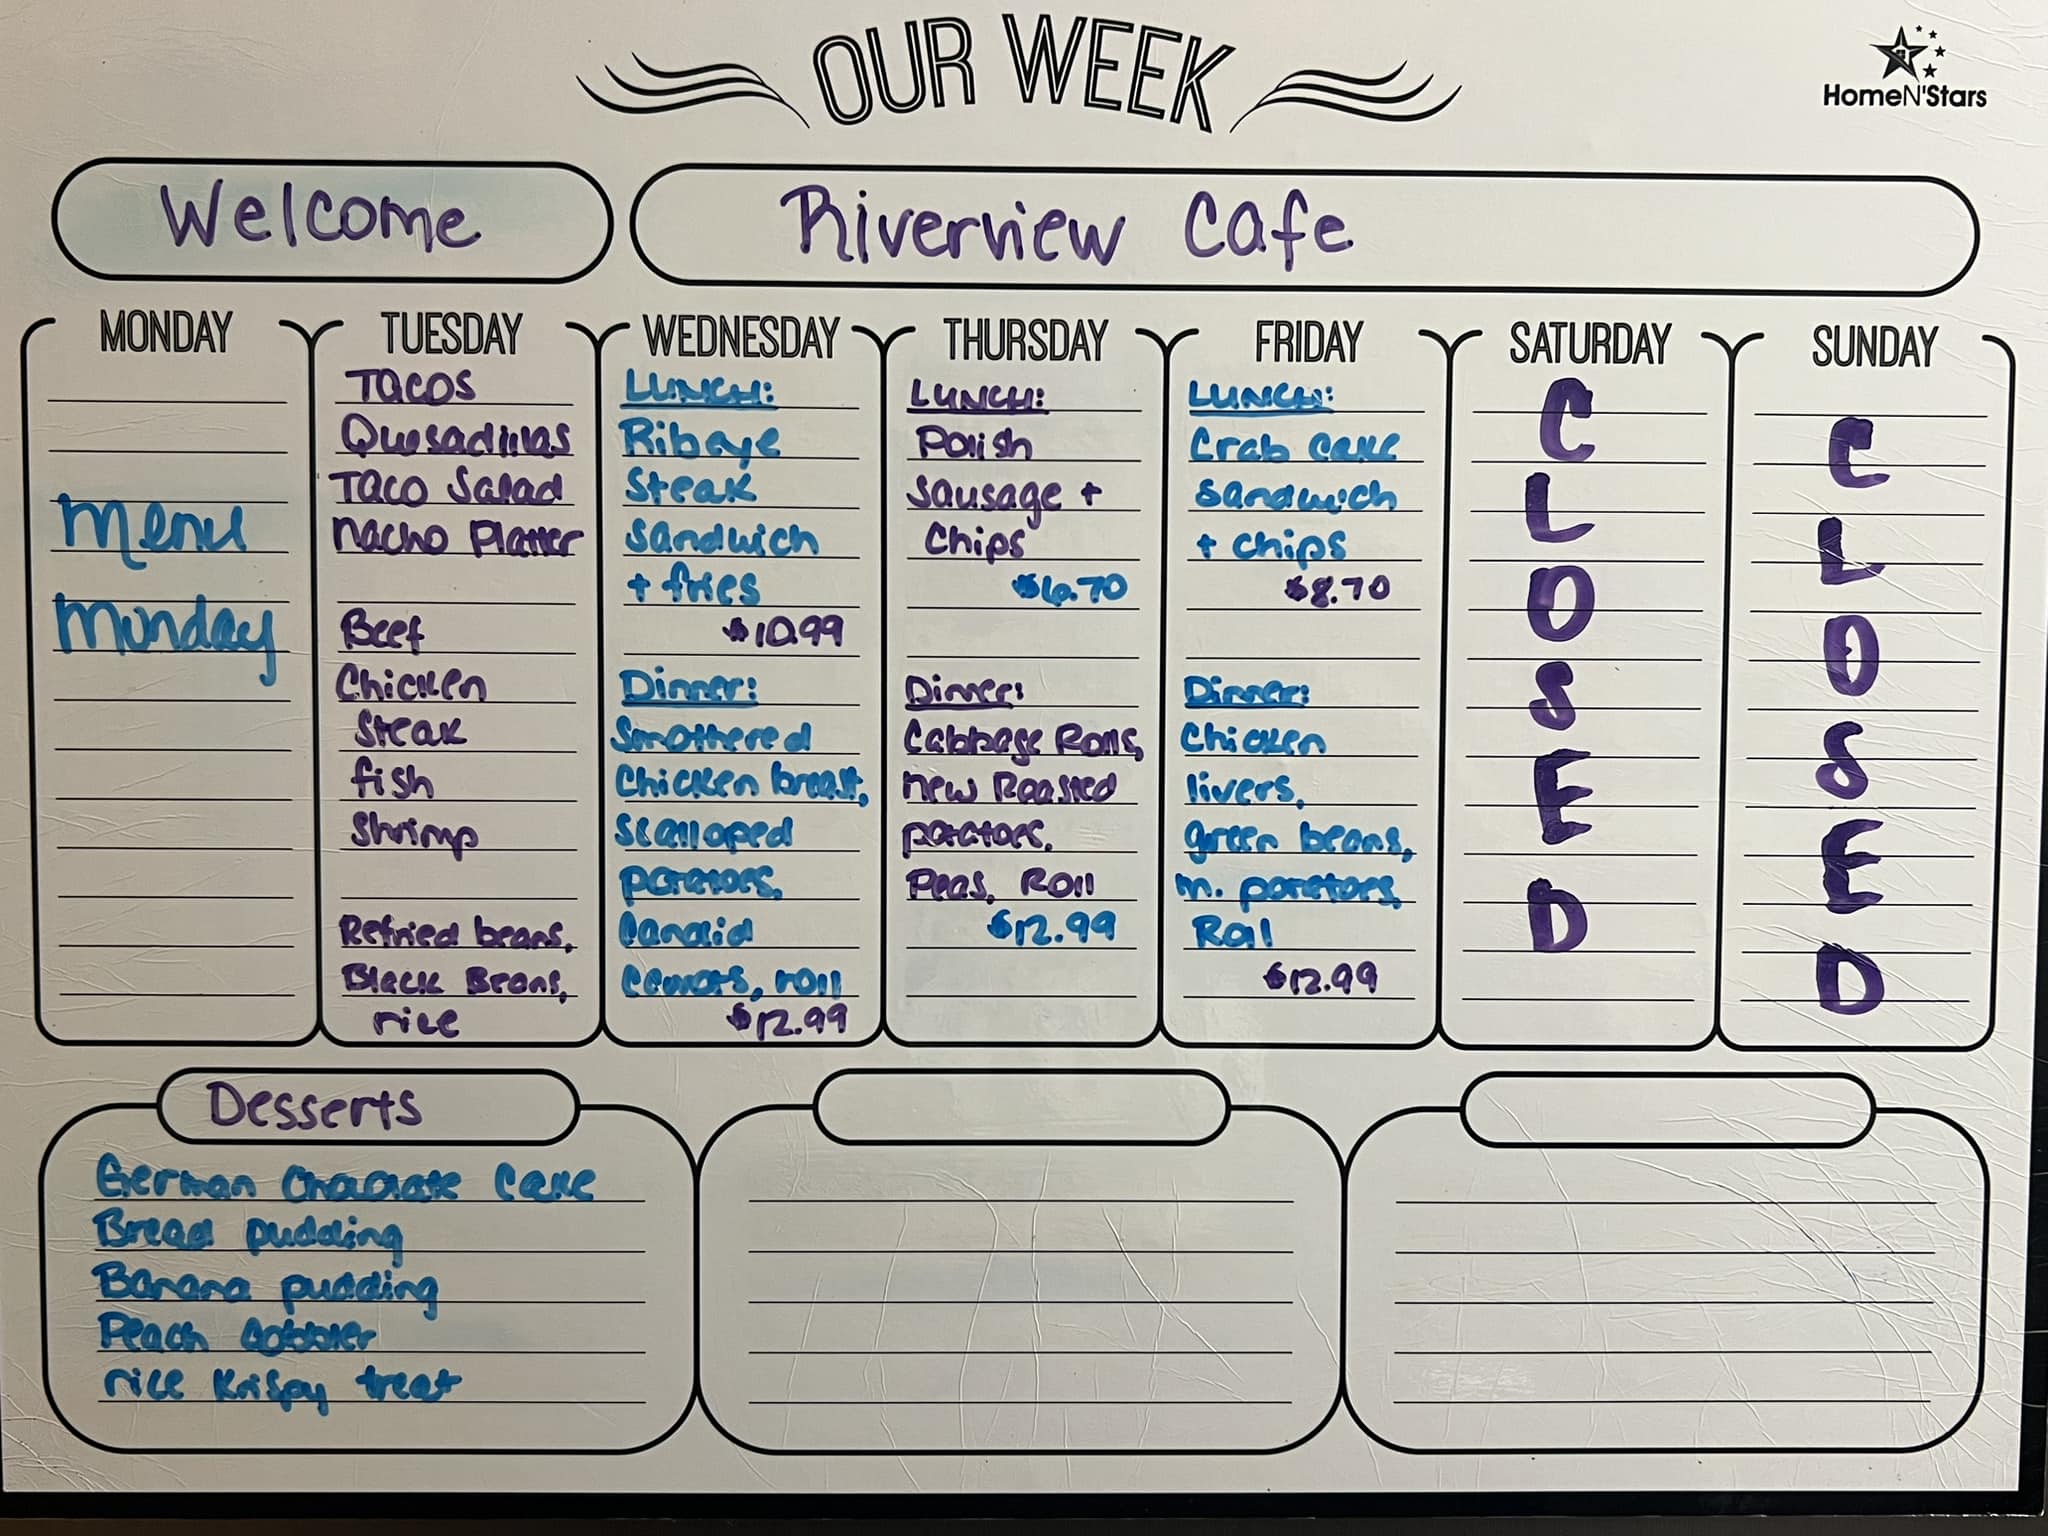 OUR WEEK
HomeN'Stars
Welcome
Riverview Cafe
MONDAY
Menu
Monday
TUESDAY
Tacos
Quesadillas
Taco Salad
Nacho Platter
Beef
Chicken
Steak
fish
Shrimp
Refried beans,
Black Beans,
rice
WEDNESDAY
LUNCH:
Ribeye
Steak
Sandwich
+ fries
$10.99
Dinner:
Smothered
Chicken breast,
Scalloped
potatoes,
Candid
Carrots, roll
$12.99
THURSDAY
LUNCH:
Polish
Sausage +
Chips
$6.70
Dinner:
Cabbage Rolls,
New Roasted
potatoes,
Peas, Roll
$12.99
FRIDAY
LUNCH:
Crab cake
Sandwich
+ chips
$8.70
Dinner:
Chicken
livers,
green beans,
m. potatoes,
Roll
$12.99
SATURDAY
CLOSED
SUNDAY
CLOSED
Desserts
German Chocolate Cake
Bread pudding
Banana pudding
Peach Cobbler
rice Krispy treat